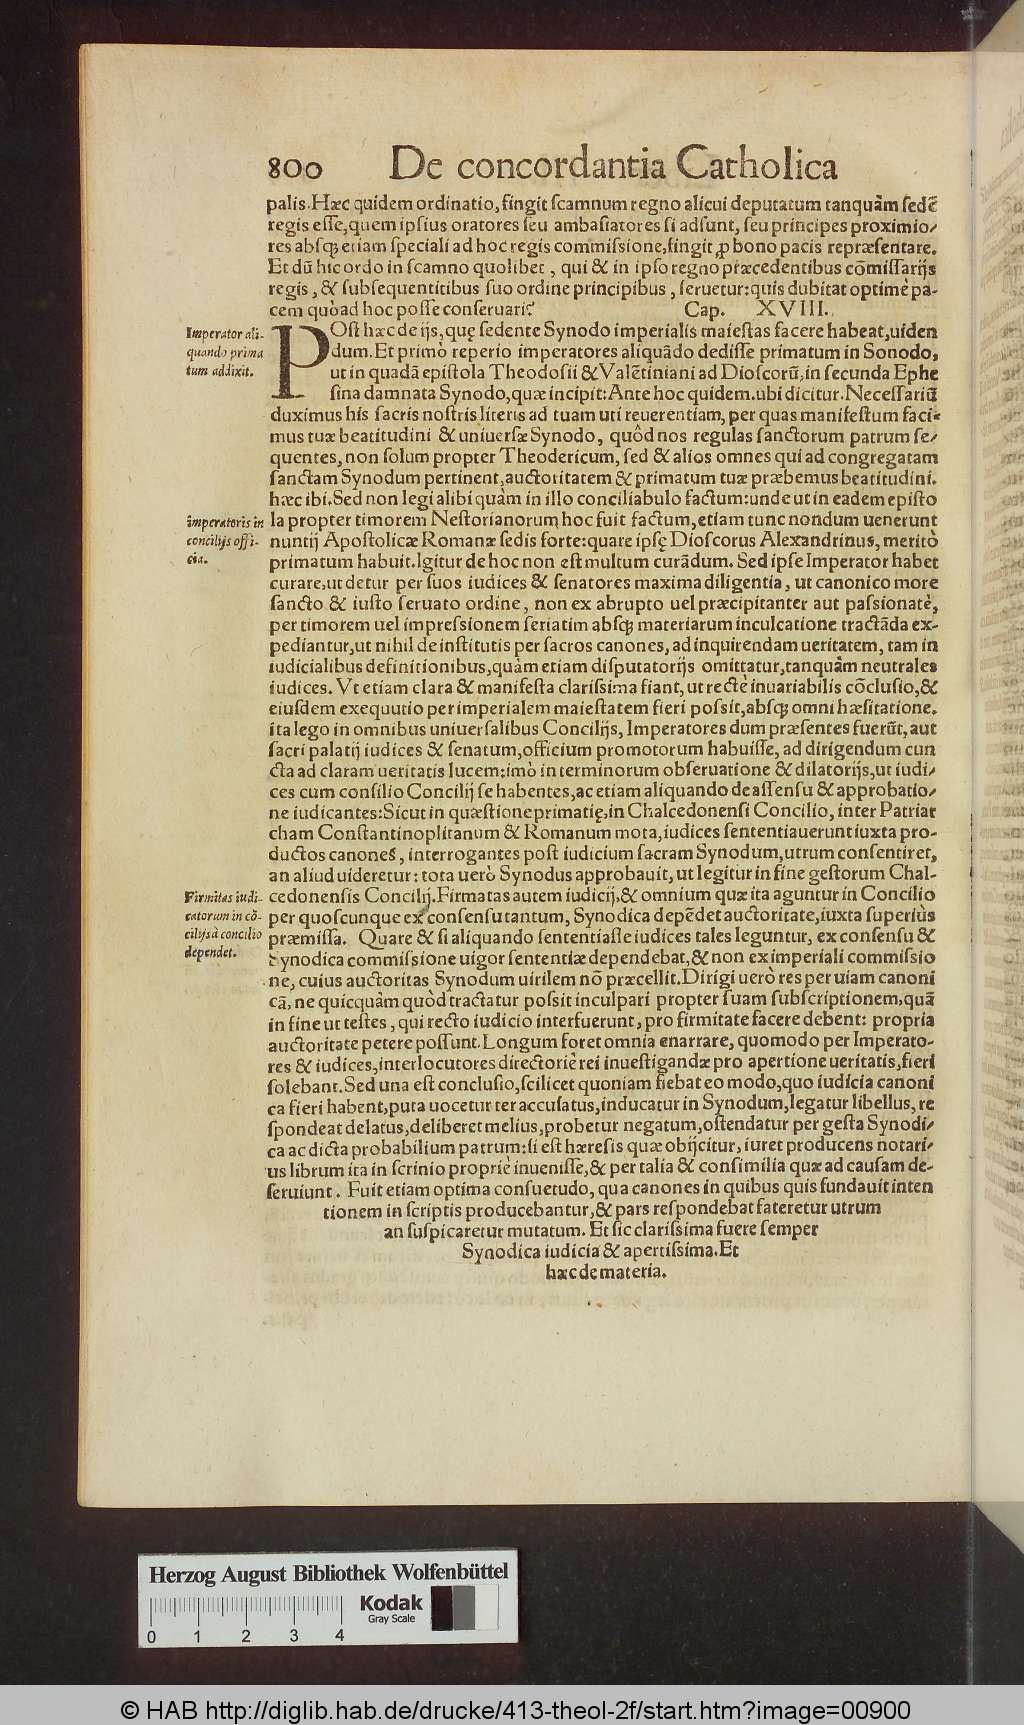 800 De concordantia Catholica
palis. Hæc quidem ordinatio, fingit scamnum regno alicui deputatum tanquàm sedẽ
regis esse, quem ipsius oratores seu ambasiatores si adsunt, seu principes proximio-
res absq; etiam speciali ad hoc regis commissione, fingit ꝓ bono pacis repræsentare.
Et dũ hic ordo in scamno quolibet, qui & in ipso regno præcedentibus cõmissarijs
regis, & subsequentibus suo ordine principibus, seruetur: quis dubitat optimè pa-
cem quòad hoc posse conseruari? Cap. XVIII.
Imperator ali-
quando prima
tum addixit.
POst hæc de ijs, quę sedente Synodo imperialis maiestas facere habeat, uiden
dum. Et primò reperio imperatores aliquãdo dedisse primatum in Sonodo,
ut in quadã epistola Theodosii & Valẽtiniani ad Dioscorũ, in secunda Ephe
sina damnata Synodo, quæ incipit: Ante hoc quidem. ubi dicitur. Necessariũ
duximus his sacris nostris literis ad tuam uti reuerentiam, per quas manifestum faci-
mus tuæ beatitudini & uniuersæ Synodo, quòd nos regulas sanctorum patrum se-
quentes, non solum propter Theodericum, sed & alios omnes qui ad congregatam
sanctam Synodum pertinent, auctoritatem & primatum tuæ præbemus beatitudini.
hæc ibi. Sed non legi alibi quàm in illo conciliabulo factum: unde ut in eadem episto
imperatoris in
concilijs offi-
cia.
la propter timorem Nestorianorum hoc fuit factum, etiam tunc nondum uenerunt
nuntij Apostolicæ Romanæ sedis forte: quare ipsę Dioscorus Alexandrinus, meritò
primatum habuit. Igitur de hoc non est multum curãdum. Sed ipse Imperator habet
curare, ut detur per suos iudices & senatores maxima diligentia, ut canonico more
sancto & iusto seruato ordine, non ex abrupto uel præcipitanter aut passionatè,
per timorem uel impressionem seriatim absq; materiarum inculcatione tractãda ex-
pediantur, ut nihil de institutis per sacros canones, ad inquirendam ueritatem, tam in
iudicialibus definitionibus, quàm etiam disputatorijs omittatur, tanquàm neutrales
iudices. Vt etiam clara & manifesta clarissima fiant, ut rectè inuariabilis cõclusio, &
eiusdem exequutio per imperialem maiestatem fieri possit, absq; omni hæsitatione.
ita lego in omnibus uniuersalibus Concilijs, Imperatores dum præsentes fuerũt, aut
sacri palatij iudices & senatum, officium promotorum habuisse, ad dirigendum cun
cta ad claram ueritatis lucem: imò in terminorum obseruatione & dilatorijs, ut iudi-
ces cum consilio Concilij se habentes, ac etiam aliquando de assensu & approbatio-
ne iudicantes: Sicut in quæstione primatię, in Chalcedonensi Concilio, inter Patriar
cham Constantinoplitanum & Romanum mota, iudices sententiauerunt iuxta pro-
ductos canones, interrogantes post iudicium sacram Synodum, utrum consentiret,
an aliud uideretur: tota uerò Synodus approbauit, ut legitur in fine gestorum Chal-
Firmitas iudi-
catorum in cõ-
cilijs à concilio
dependet.
cedonensis Concilij. Firmatas autem iudicij, & omnium quæ ita aguntur in Concilio
per quoscunque ex consensu tantum, Synodica depẽdet auctoritate, iuxta superiùs
præmissa. Quare & si aliquando sententiasse iudices tales leguntur, ex consensu &
Synodica commissione uigor sententiæ dependebat, & non ex imperiali commissio
ne, cuius auctoritas Synodum uirilem nõ præcellit. Dirigi uerò res per uiam canoni
cã, ne quicquàm quòd tractatur possit inculpari propter suam subscriptionem, quã
in fine ut testes, qui recto iudicio interfuerunt, pro firmitate facere debent: propria
auctoritate petere possunt. Longum foret omnia enarrare, quomodo per Imperato-
res & iudices, interlocutores directoriè rei inuestigandæ pro apertione ueritatis, fieri
solebant. Sed una est conclusio, scilicet quoniam fiebat eo modo, quo iudicia canoni
ca fieri habent, puta uocetur ter accusatus, inducatur in Synodum, legatur libellus, re
spondeat delatus, deliberet melius, probetur negatum, ostendatur per gesta Synodi-
ca ac dicta probabilium patrum: si est hæresis quæ obijcitur, iuret producens notari-
us librum ita in scrinio propriè inuenisse, & per talia & consimilia quæ ad causam de-
seruiunt. Fuit etiam optima consuetudo, qua canones in quibus quis fundauit inten
tionem in scriptis producebantur, & pars respondebat fateretur utrum
an suspicaretur mutatum. Et sic clarissima fuere semper
Synodica iudicia & apertissima. Et
hæc de materia.
Herzog August Bibliothek Wolfenbüttel
Kodak
Gray Scale
0 1 2 3 4
© HAB http://diglib.hab.de/drucke/413-theol-2f/start.htm?image=00900